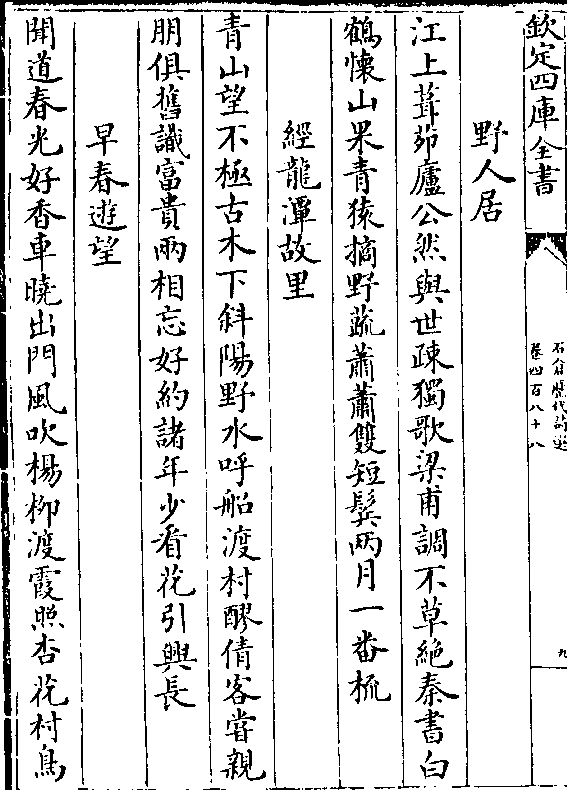 欽定四庫全書
石倉歷代詩選
卷四百八十八
九
野人居
江上葺茆廬公然與世疎獨歌梁甫調不草絶秦書白
鶴懷山果青猿摘野蔬蕭蕭雙短鬂兩月一番梳
經龍潭故里
青山望不極古木下斜陽野水呼船渡村醪倩客嘗親
朋俱舊識富貴兩相忘好約諸年少看花引興長
早春遊望
聞道春光好香車曉出門風吹楊柳渡霞照杏花村鳥